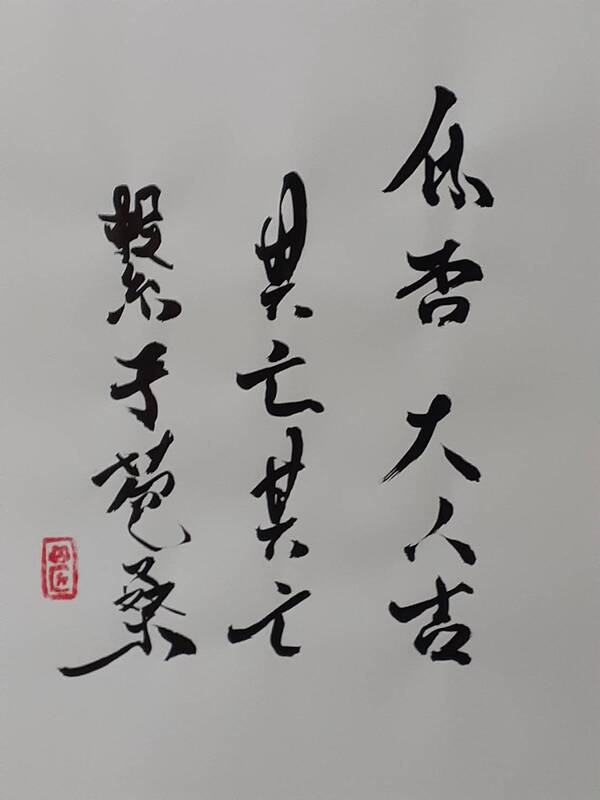 休否 大人吉
其亡其亡
繫于苞桑